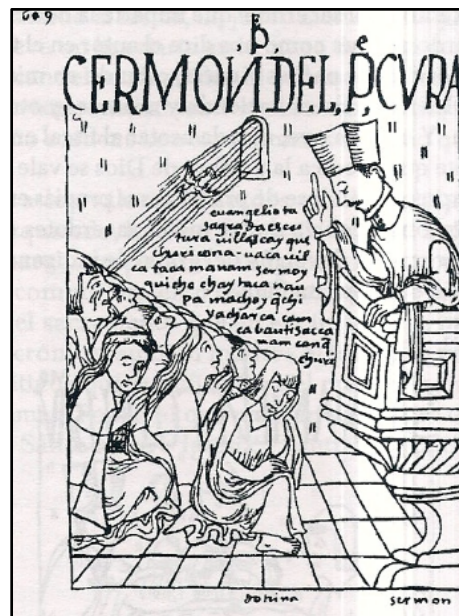 609
P
SERMON DEL, P.e CVRA
euangelio ta
sagrada escri
tura uillascayqui
churicona uaca uil
ca taca manam sermoy
quicho chay taca nau
pa machoyqchi
yacharca cam
ca bautisasca
mam conq
churi
dotrina
sermon